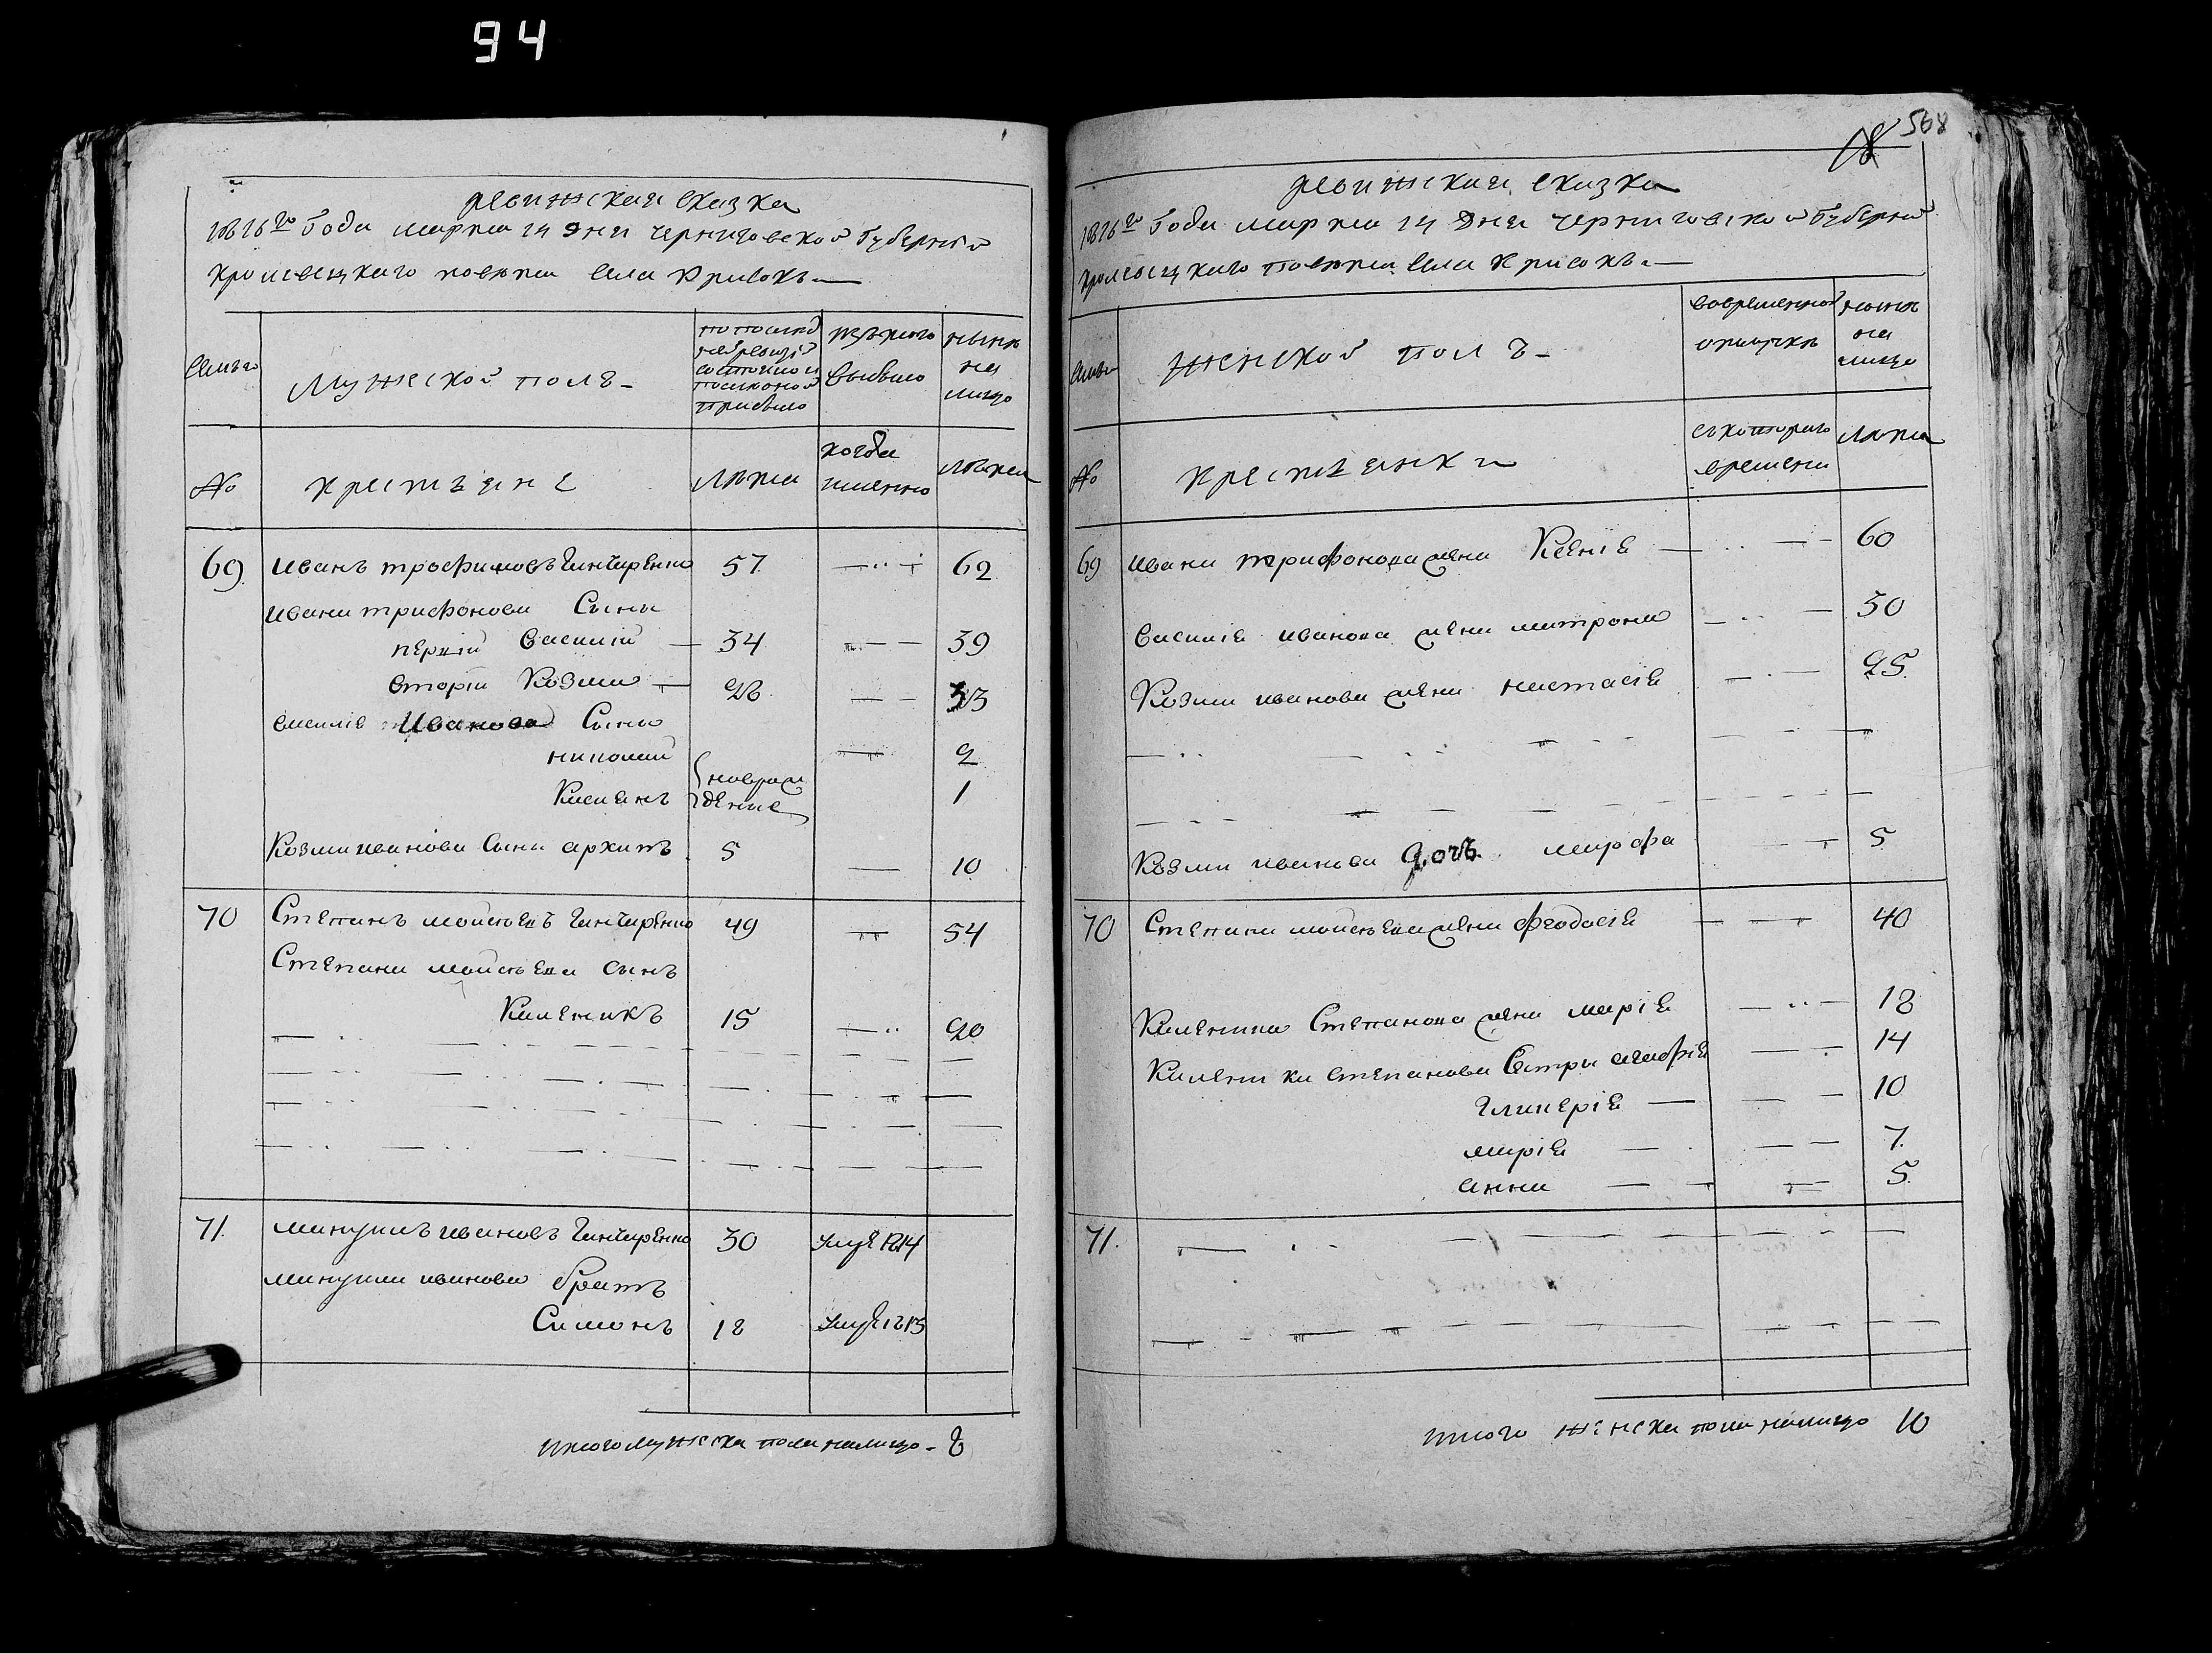 94
ревижская сказка
1816го Года марта 14 дня черниговской Губернии
кролевецкаго повета Села Крисокъ
Семьи
Мужеской полъ
по последней ревизіи состояло и после оной прибыло
изъ того выбыло
ныне на лицо
№
крестьяне
Лета
когда именно
Лета
69 Иванъ трофимовъ 57 62
Ивана трифонова Сыны
первій Василій 34 39
вторій Козма 28 33
василія Иванова Сыны
николай 2
Касіянъ новорожденные 1
Козми иванова Сынъ архипъ 5 10
70 Степанъ мойсеевъ 49 54
Степана мойсеева сынъ
Каленикъ 15 20
71. мануилъ ивановъ 30 умре 1814
мануила иванова братъ
Симонъ 18 умре 1815
итого мужеска пола налицо - 8
568
18
ревижская сказка
1816го Года марта 14 Дня черниговской Губернии
кролевецкаго повета Села Крисокъ
Семьи
Женской полъ
во временной отлучке
ныне на лицо
№
крестьянки
съ котораго времени
Лета
69 Ивана трифонова жена Ксенія 60
Василія иванова жена матрона 30
Козми иванова жена настасія 25
Козми иванова Дочь марфа 5
70 Степана мойсеева жена феодосія 40
Каленика Степанова жена марія 18
Каленика степанова Сестри агафія 14
гликерія 10
марія 7
анна 5
71.
итого женска пола налицо 10